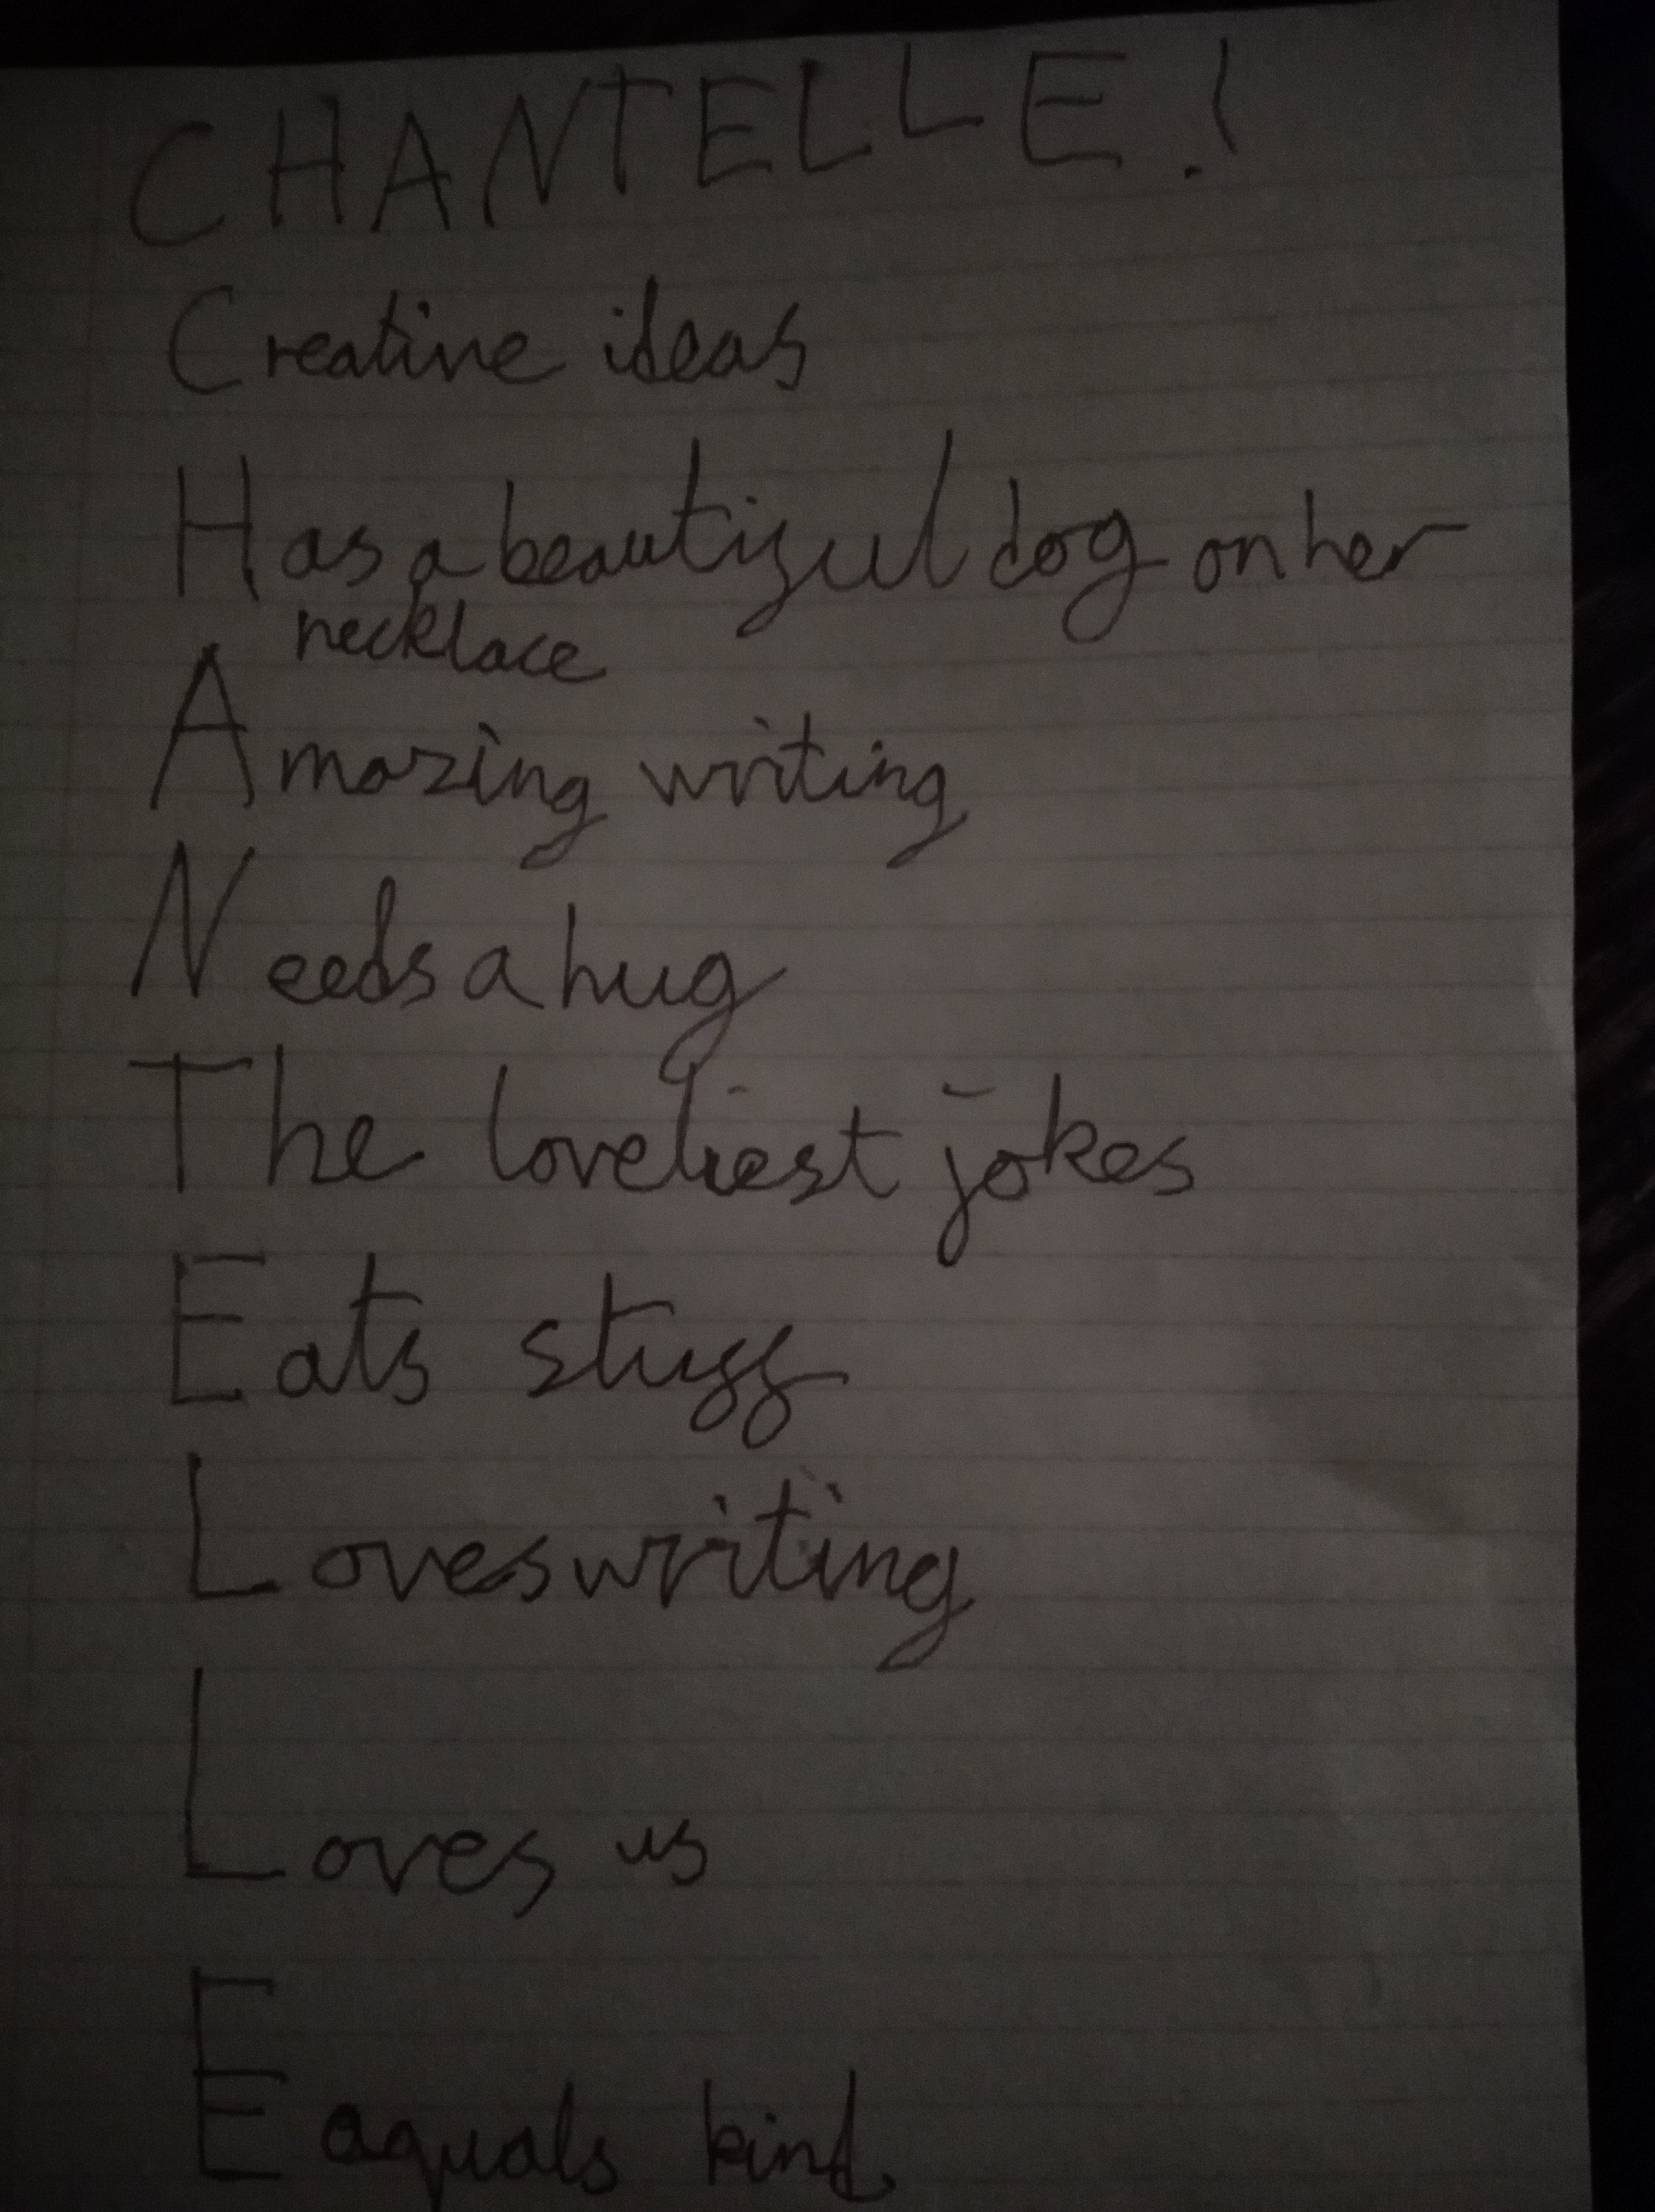 CHANTELLE.!
Creative ideas
Has a beautiful dog on her
necklace
Amazing writing
Needs a hug
The loveliest jokes
Eats stuff
Loves writing
Loves us
Eaquals kind